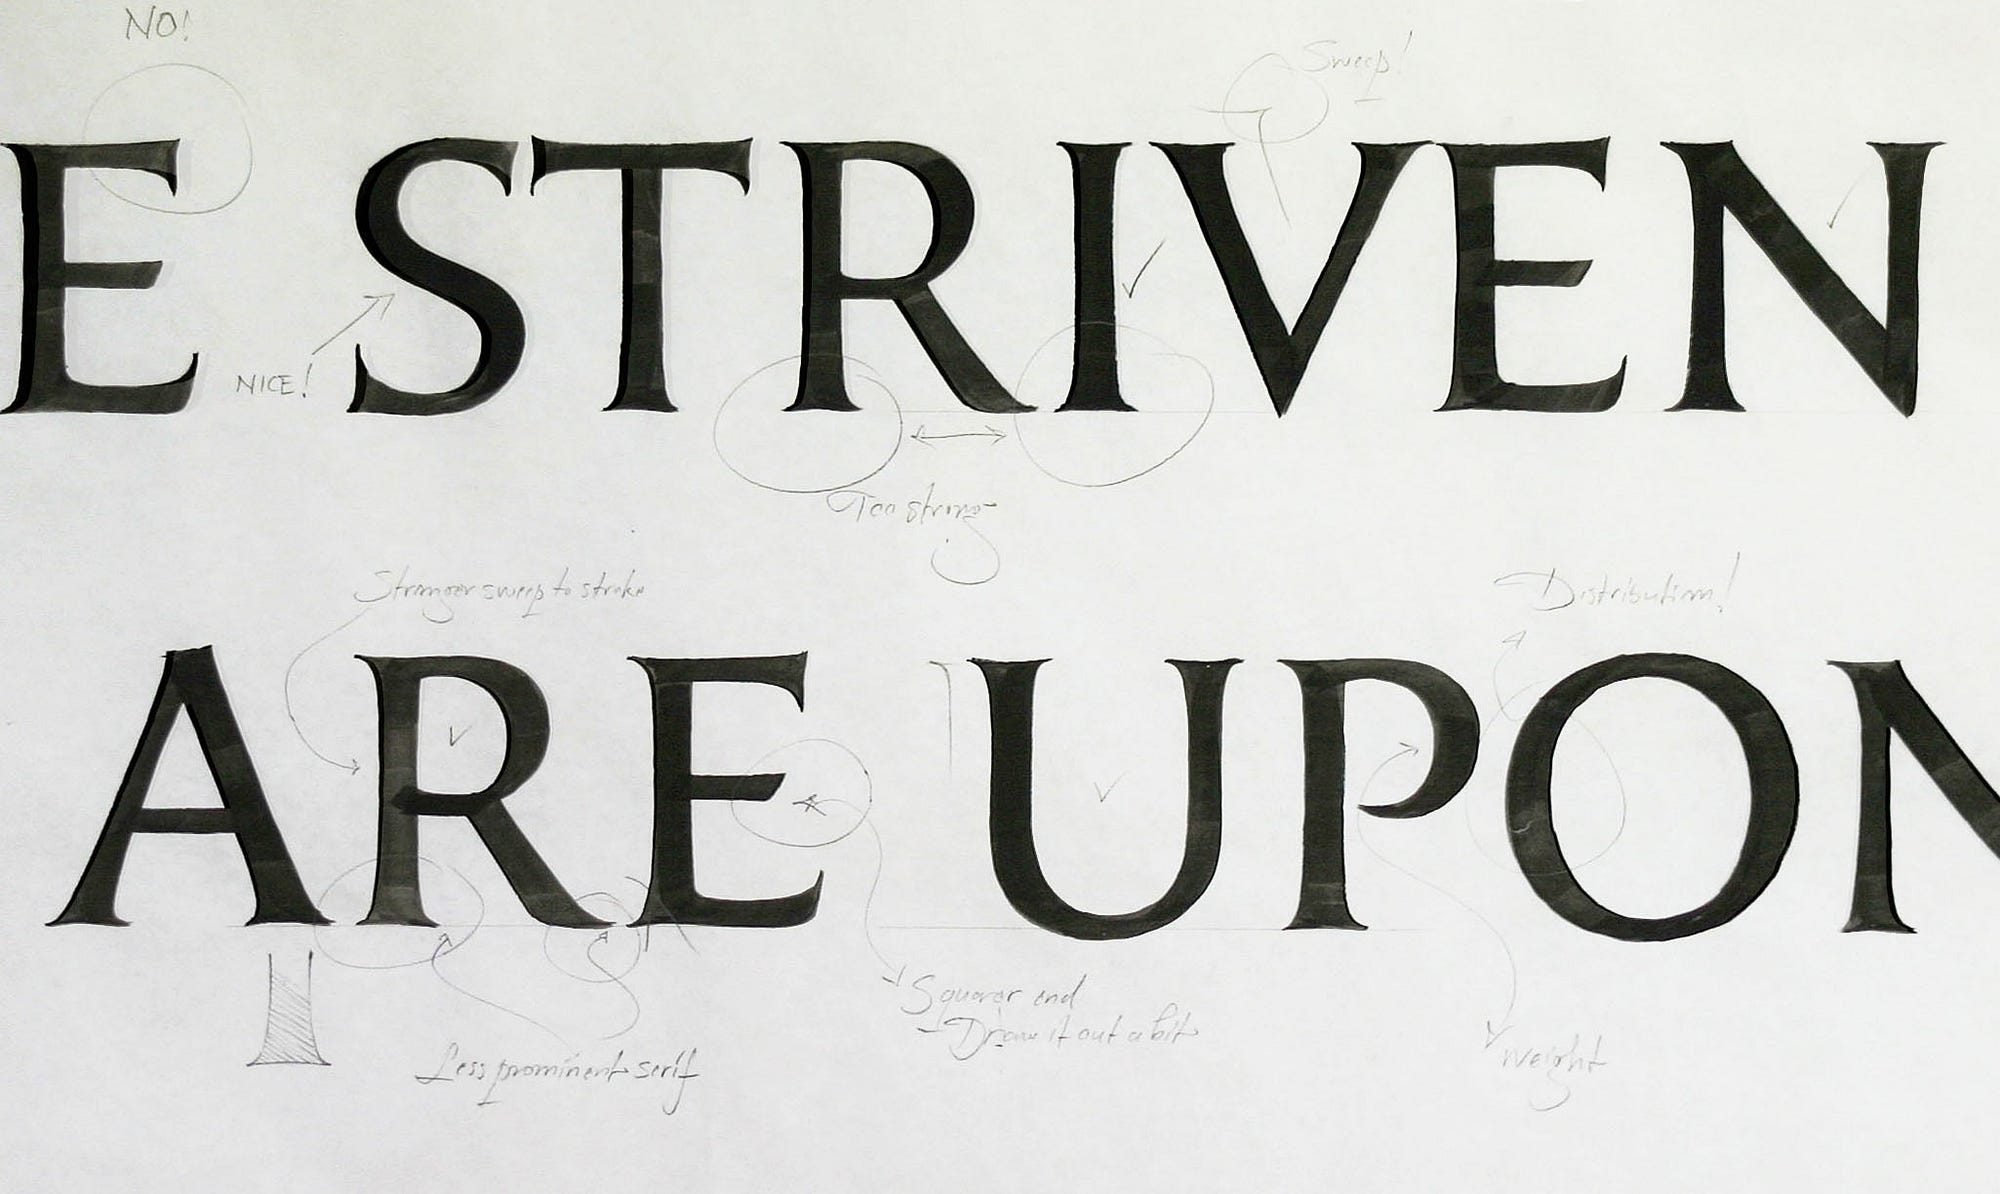 NO!
Sweep!
E STRIVEN
NICE!
Too strong
Stronger sweep to stroke
Distribution!
ARE UPON
Squarer end
- Draw it out a bit
Less prominent serif
weight